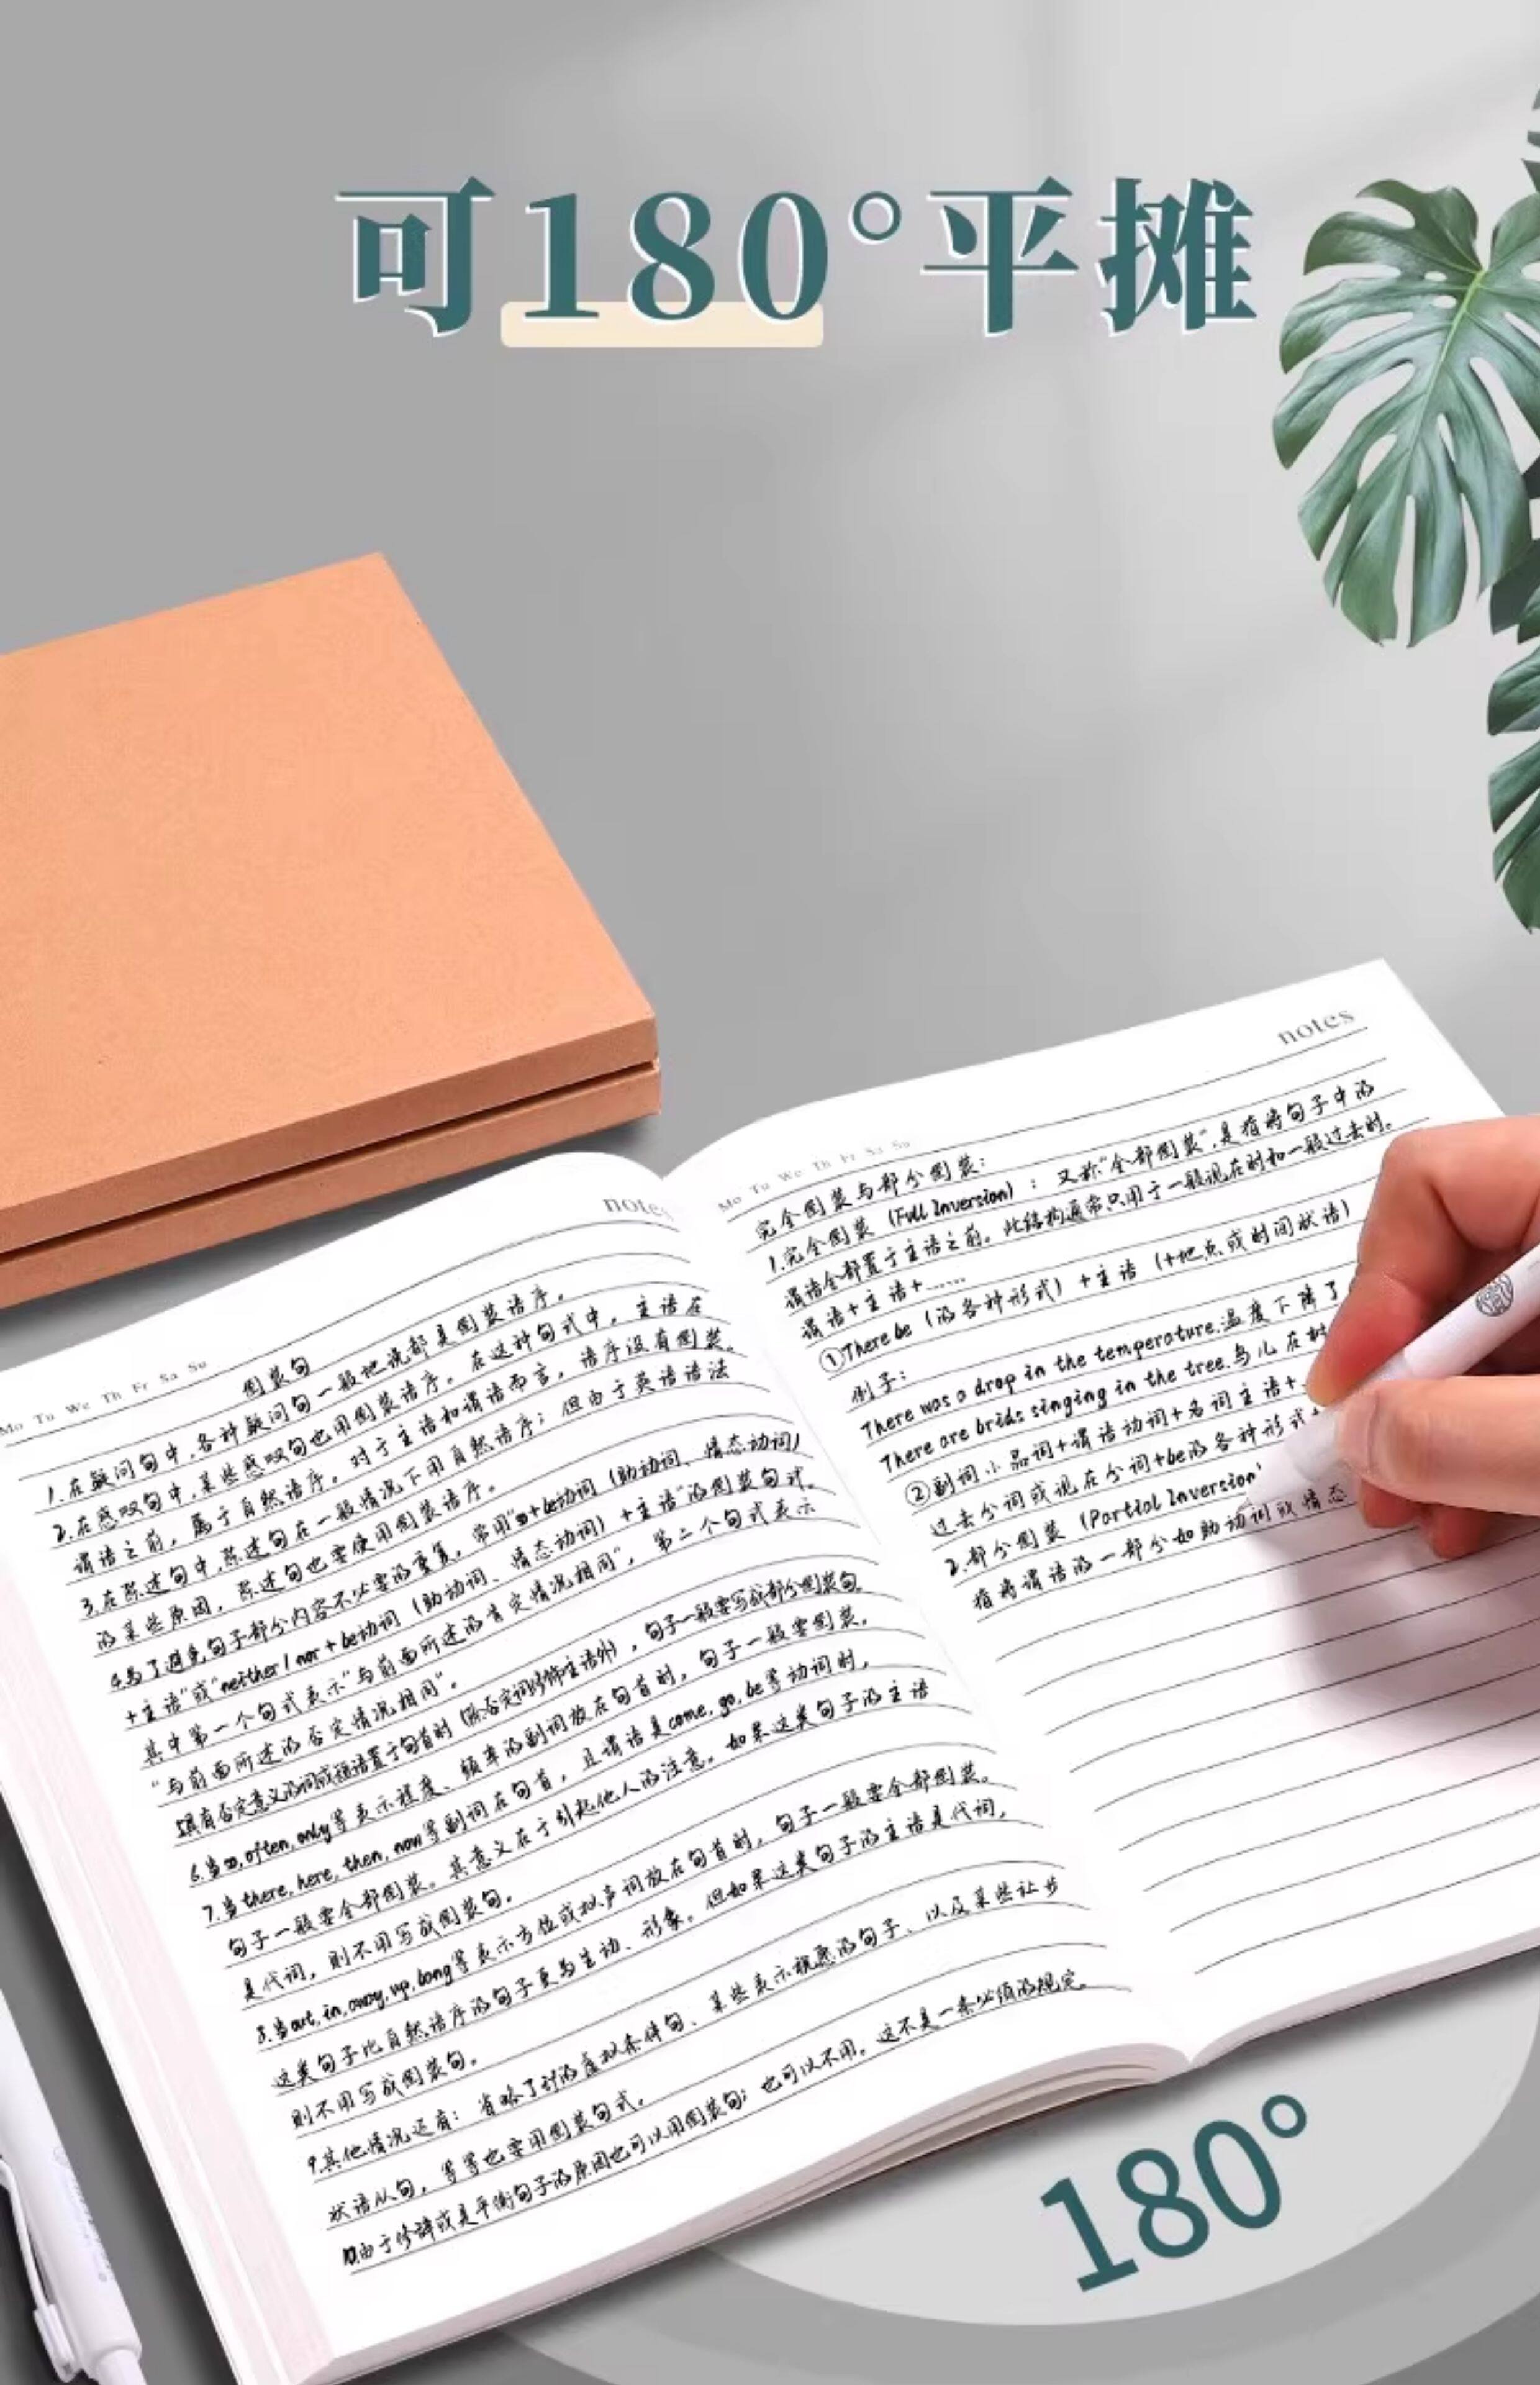 可180°平摊
notes
Mo Tu We Th Fr Sa Su
倒装句
1.在疑问句中,各种疑问句一般地说都是倒装语序。
2.在感叹句中,某些感叹句也用倒装语序。在这种句式中,主语在
谓语之前,属于自然语序。对于主语和谓语而言,语序没有倒装。
3.在陈述句中,陈述句在一般情况下用自然语序;但由于英语语法
的某些原因,陈述句也要使用倒装语序。
4.为了避免句子部分内容不必要的重复,常用"so+be动词(助动词、情态动词)
+主语"或"neither/nor+be动词(助动词、情态动词)+主语"的倒装句式。
其中第一个句式表示"与前面所述的肯定情况相同",第二个句式表示
"与前面所述的否定情况相同"。
5.具有否定意义的词或短语置于句首时(除否定词修饰主语外),句子一般要写成部分倒装句。
6.当so,often,only等表示程度、频率的副词放在句首时,句子一般要倒装。
7.当there,here,then,now等副词在句首,且谓语是come,go,be等动词时,
句子一般要全部倒装。其意义在于引起他人的注意。如果这类句子的主语
是代词,则不用写成倒装句。
8.当out,in,away,up,bang等表示方位或拟声词放在句首时,句子一般要全部倒装。
这类句子比自然语序的句子更为生动、形象。但如果这类句子的主语是代词,
则不用写成倒装句。
9.其他情况还有:省略了if的虚拟条件句、某些表示祝愿的句子、以及某些让步
状语从句,等等也要用倒装句式。
10.由于修辞或是平衡句子的原因也可以用倒装句;也可以不用,这不是一条必须的规定
notes
Mo Tu We Th Fr Sa Su
完全倒装与部分倒装:
1.完全倒装(Full Inversion):又称"全部倒装",是指将句子中的
谓语全部置于主语之前。此结构通常只用于一般现在时和一般过去时。
谓语+主语+......
①There be(的各种形式)+主语(+地点或时间状语)
例子:
There was a drop in the temperature.温度下降了
There are brids singing in the tree.鸟儿在树
②副词小品词+谓语动词+名词主语+
过去分词或现在分词+be的各种形式+
2.部分倒装(Partial Inversion
指将谓语的一部分如助动词或情态
180°